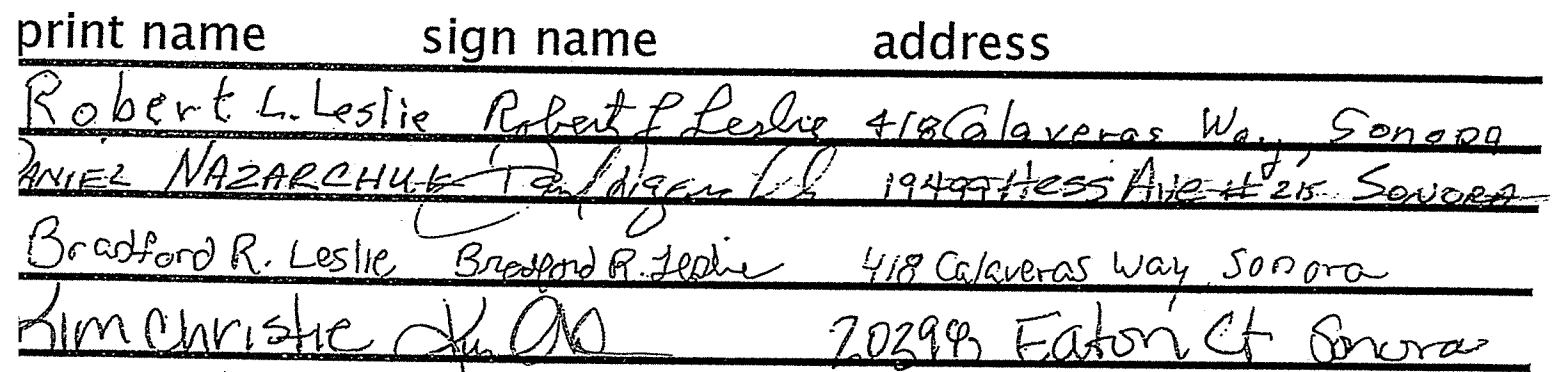 print name sign name address
Robert L. Leslie Robert L Leslie 418 Calaveras Way, Sonora
DANIEL NAZARCHUK 19499 Hess Ave # 215 SONORA
Bradford R. Leslie Bradford R. Leslie 418 Calaveras Way Sonora
Kim Christie Eaton Ct Sonora